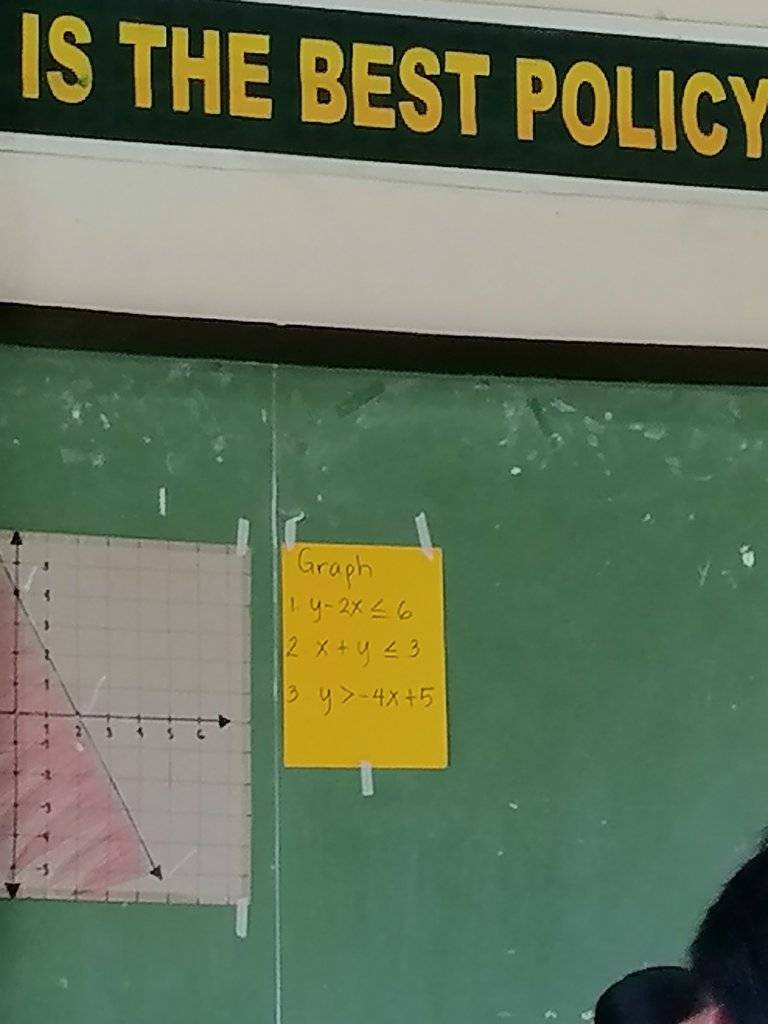 IS THE BEST POLICY
Graph
1. y-2x ≤ 6
2 x + y ≤ 3
3 y > -4x+5
5
4
3
2
1
1 2 3 4 5 6
-1
-2
-3
-4
-5